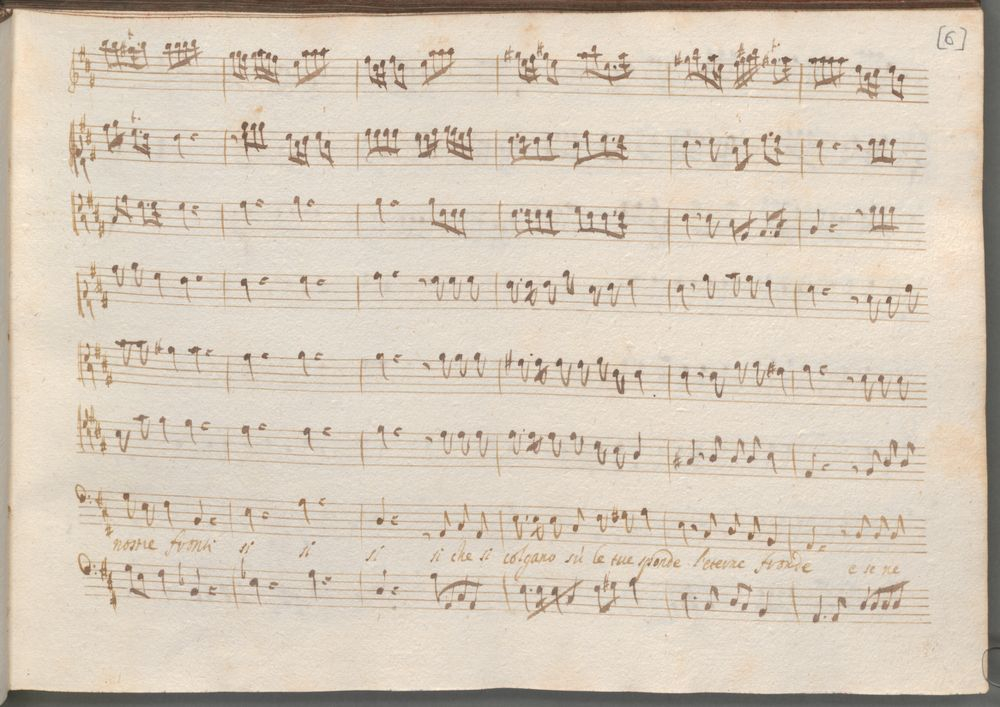 [6]
nostre fronti si si si si che si colgano sù le tue sponde l'eterne fronde e se ne